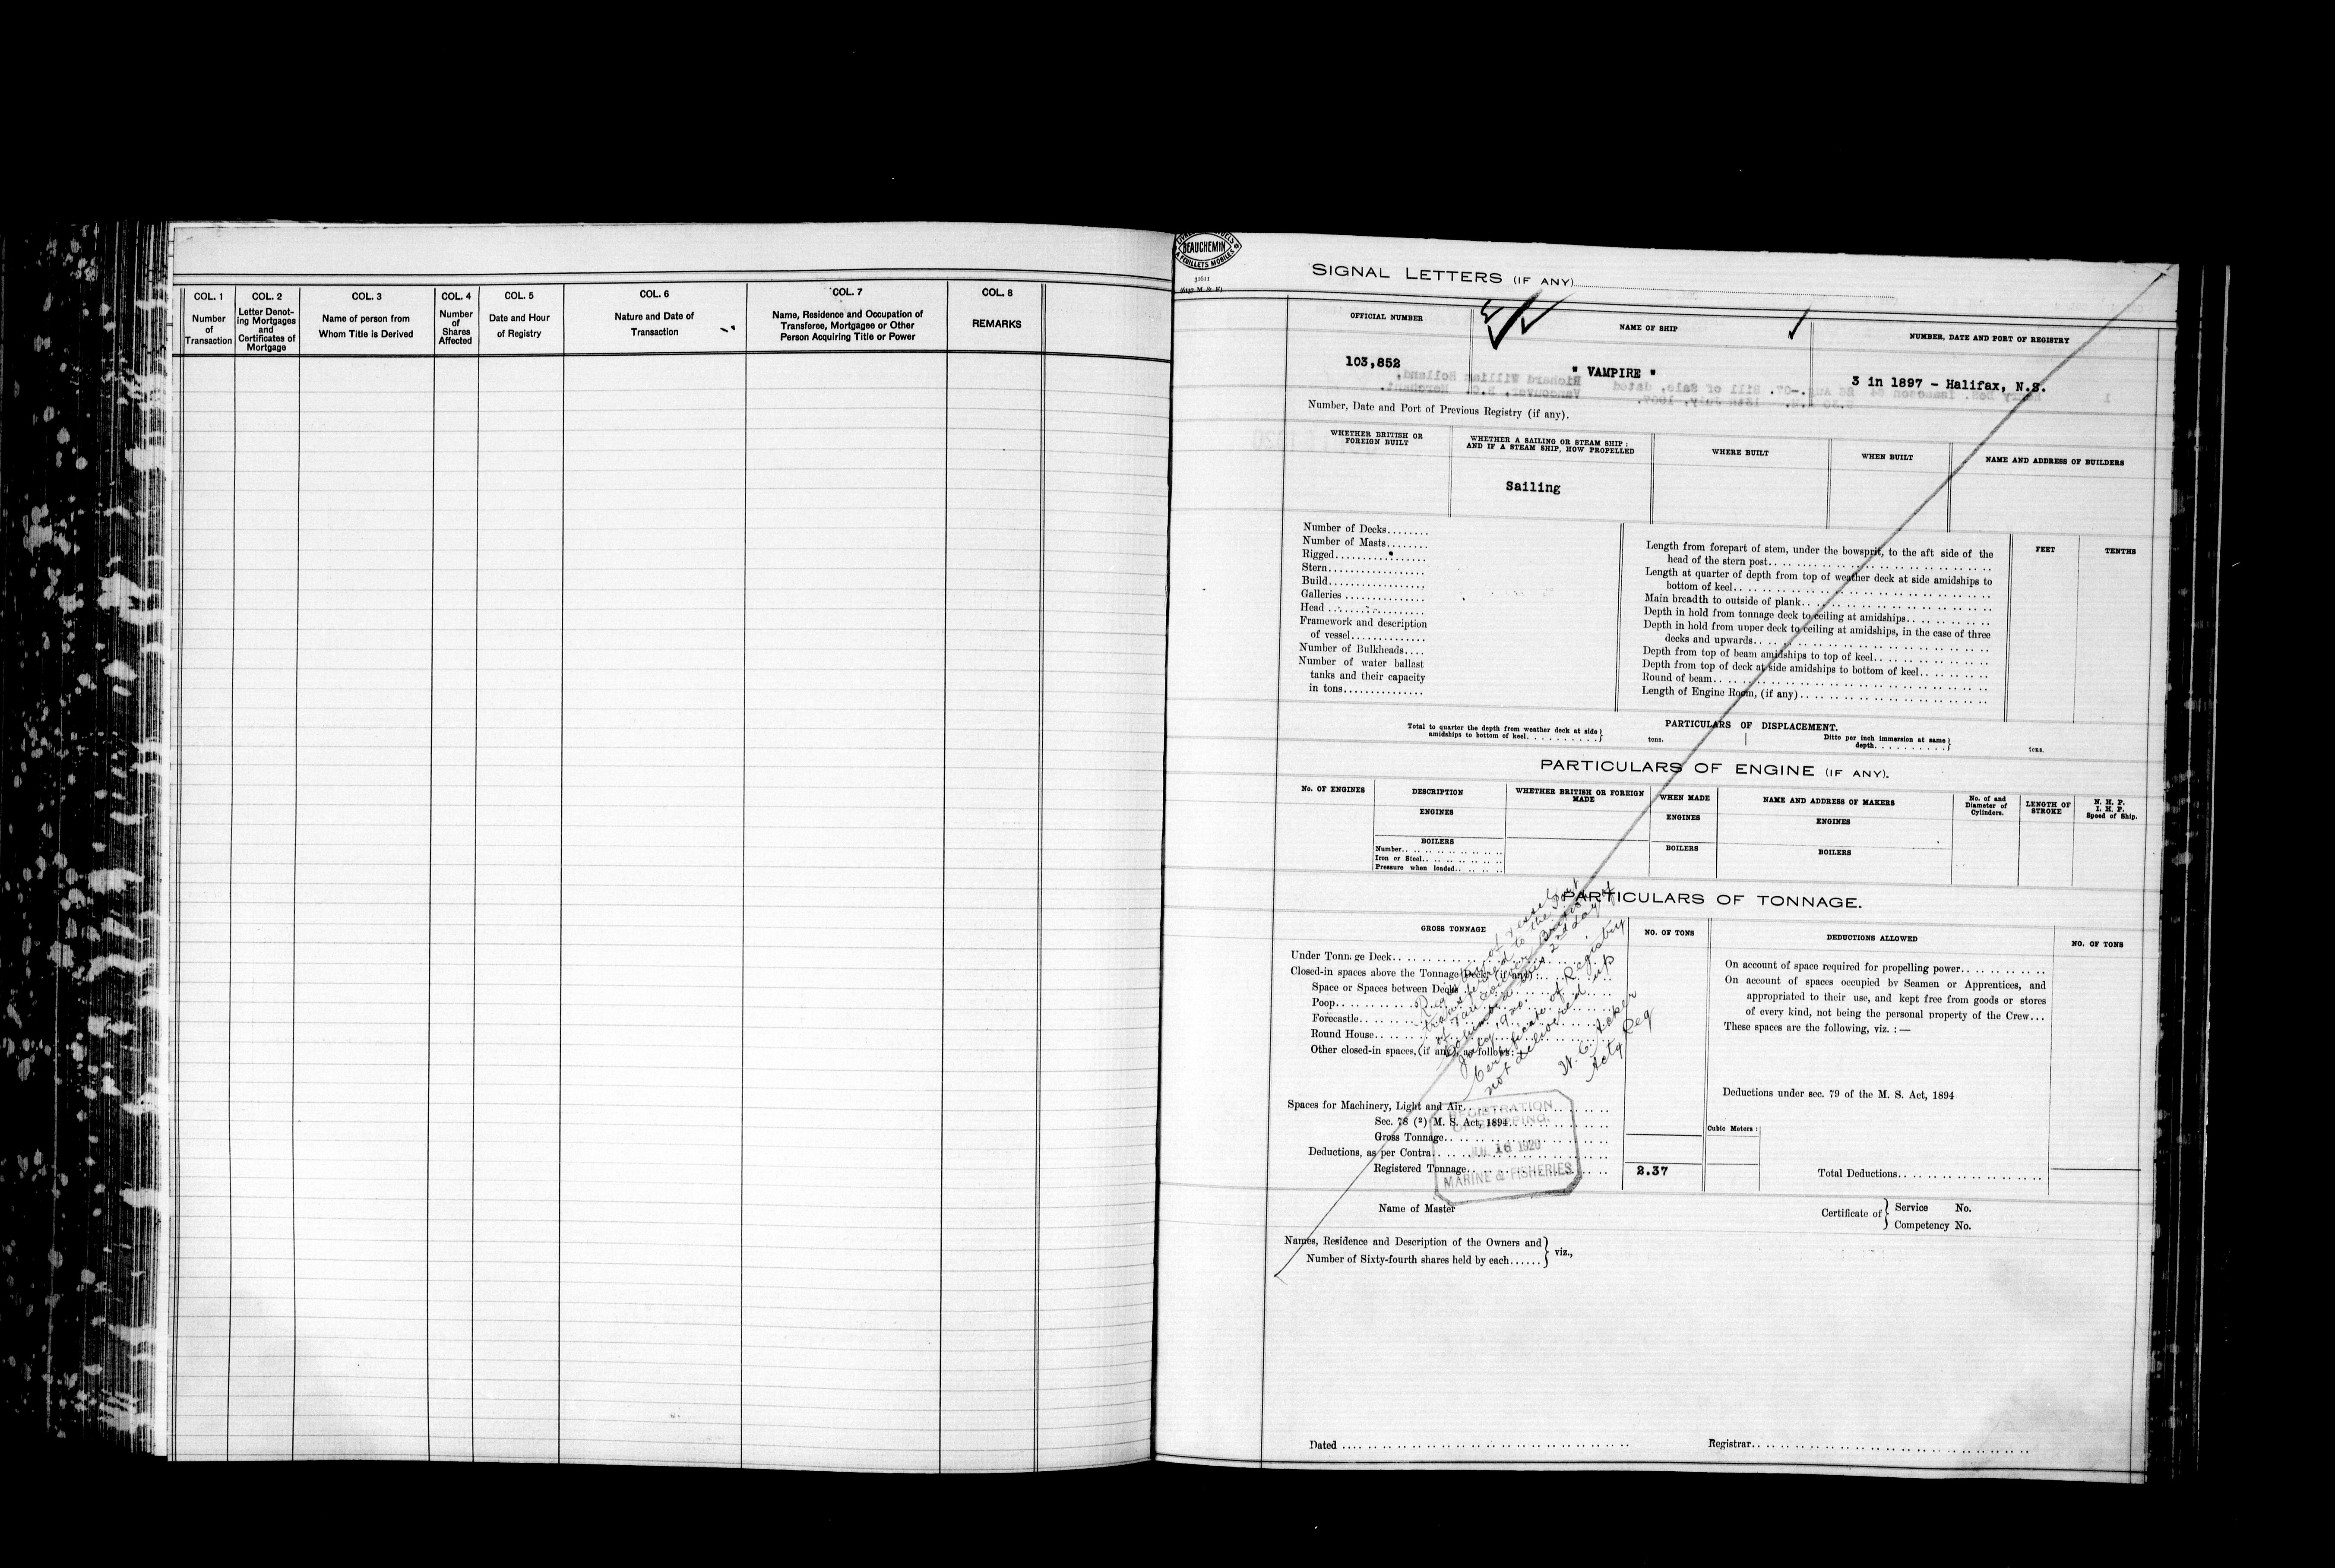 COL. 1
Number
of
Transaction
COL. 2
Letter Denot-
ing Mortgages
and
Certificates of
Mortgage
COL. 3
Name of person from
Whom Title is Derived
COL. 4
Number
of
Shares
Affected
COL. 5
Date and Hour
of Registry
COL. 6
Nature and Date of
Transaction
COL. 7
Name, Residence and Occupation of
Transferee, Mortgagee or Other
Person Acquiring Title or Power
COL. 8
REMARKS
BEAUCHEMIN
A FEUILLETS MOBILES
31611
(6137 M & F)
SIGNAL LETTERS (IF ANY)
OFFICIAL NUMBER
NAME OF SHIP
NUMBER, DATE AND PORT OF REGISTRY
103,852
" VAMPIRE "
3 in 1897 - Halifax, N.S.
Number, Date and Port of Previous Registry (if any).
WHETHER BRITISH OR
FOREIGN BUILT
WHETHER A SAILING OR STEAM SHIP ;
AND IF A STEAM SHIP, HOW PROPELLED
WHERE BUILT
WHEN BUILT
NAME AND ADDRESS OF BUILDERS
Sailing
Number of Decks........
Number of Masts........
Rigged..................
Stern...................
Build...................
Galleries ...............
Head ...................
Framework and description
of vessel..............
Number of Bulkheads....
Number of water ballast
tanks and their capacity
in tons...............
FEET
TENTHS
Length from forepart of stem, under the bowsprit, to the aft side of the
head of the stern post..
Length at quarter of depth from top of weather deck at side amidships to
bottom of keel..
Main breadth to outside of plank..
Depth in hold from tonnage deck to ceiling at amidships..
Depth in hold from upper deck to ceiling at amidships, in the case of three
decks and upwards..
Depth from top of beam amidships to top of keel..
Depth from top of deck at side amidships to bottom of keel..
Round of beam..
Length of Engine Room, (if any)..
PARTICULARS OF DISPLACEMENT.
Total to quarter the depth from weather deck at side
amidships to bottom of keel..........}
tons.
Ditto per inch immersion at same
depth..........}
tons.
PARTICULARS OF ENGINE (IF ANY).
No. OF ENGINES
DESCRIPTION
WHETHER BRITISH OR FOREIGN
MADE
WHEN MADE
NAME AND ADDRESS OF MAKERS
No. of and
Diameter of
Cylinders.
LENGTH OF
STROKE
N. H. P.
I. H. P.
Speed of Ship.
ENGINES
ENGINES
ENGINES
BOILERS
BOILERS
BOILERS
Number..
Iron or Steel..
Pressure when loaded..
PARTICULARS OF TONNAGE.
GROSS TONNAGE
NO. OF TONS
DEDUCTIONS ALLOWED
NO. OF TONS
Under Tonn.ge Deck..
Closed-in spaces above the Tonnage Deck, (if any) :
Space or Spaces between Decks
Poop..
Forecastle..
Round House..
Other closed-in spaces, (if any), as follows :
Registry of vessel
transferred to the Port
of Vancouver British
Columbia this 2nd day of
July 1920.
Certificate of Registry
not delivered up
W. C. Acker
Actg Reg
Spaces for Machinery, Light and Air..
Sec. 78 (2) M. S. Act, 1894..
Gross Tonnage..
Deductions, as per Contra..
Registered Tonnage..
2.37
REGISTRATION
OF SHIPPING.
JUL 16 1920
MARINE & FISHERIES
On account of space required for propelling power..
On account of spaces occupied by Seamen or Apprentices, and
appropriated to their use, and kept free from goods or stores
of every kind, not being the personal property of the Crew...
These spaces are the following, viz. :—
Deductions under sec. 79 of the M. S. Act, 1894
Cubic Meters :
Total Deductions..
Name of Master
Certificate of { Service No.
Competency No.
Names, Residence and Description of the Owners and
Number of Sixty-fourth shares held by each......} viz.,
Dated ....
Registrar..